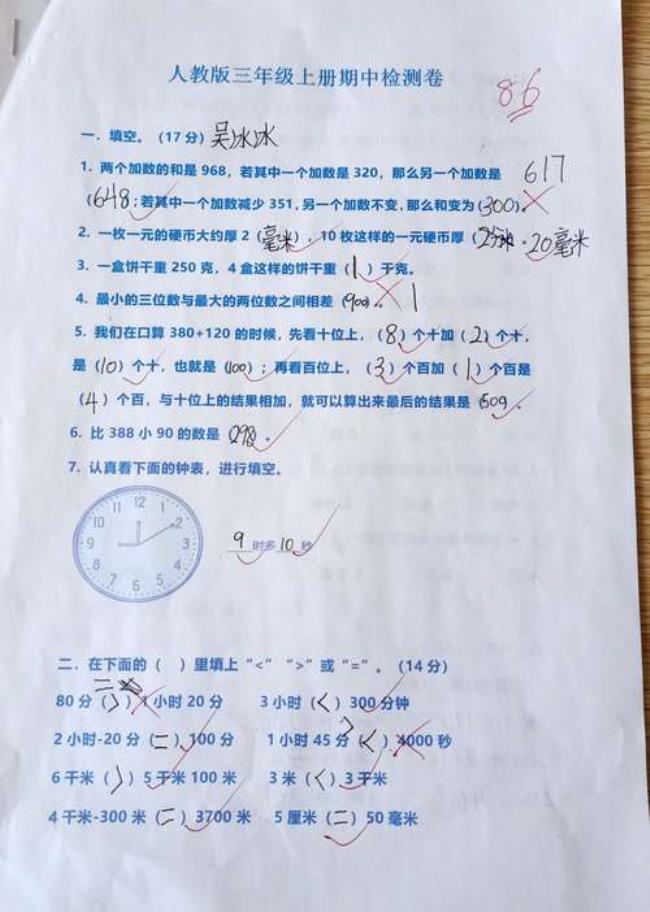 人教版三年级上册期中检测卷
86
一．填空。(17分) 吴冰冰
1. 两个加数的和是 968，若其中一个加数是 320，那么另一个加数是 617
(648；若其中一个加数减少 351，另一个加数不变，那么和变为(300)。
2. 一枚一元的硬币大约厚 2 (毫米)，10 枚这样的一元硬币厚 (2分米。20毫米
3. 一盒饼干重 250 克，4 盒这样的饼干重 (1) 千克。
4. 最小的三位数与最大的两位数之间相差 (900)。 1
5. 我们在口算 380+120 的时候，先看十位上，(8) 个十加 (2) 个十，
是 (10) 个十，也就是 (100)；再看百位上，(3) 个百加 (1) 个百是
(4) 个百，与十位上的结果相加，就可以算出来最后的结果是 509。
6. 比 388 小 90 的数是 (298)。
7. 认真看下面的钟表，进行填空。
11 12 1
10 2
9 3
8 4
7 6 5
9 时多 10 秒
二．在下面的（ ）里填上 “<” “>” 或 “=” 。(14分)
=
80 分 (>) 1 小时 20 分 3 小时 (<) 300 分钟
>
2 小时-20 分 (=) 100 分 1 小时 45 分 (<) 4000 秒
6 千米 (>) 5 千米 100 米 3 米 (<) 3 千米
4 千米-300 米 (=) 3700 米 5 厘米 (=) 50 毫米